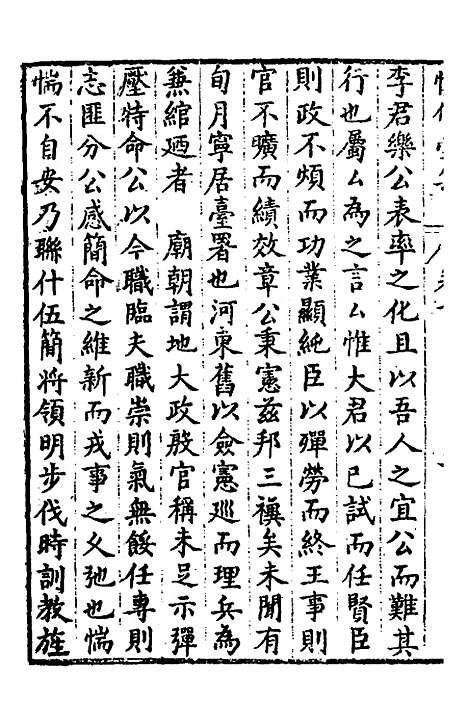 李君樂公表率之化且以吾人之宜公而難其
行也屬厶為之言厶惟大君以已試而任賢臣
則政不煩而功業顯純臣以殫勞而終王事則
官不曠而績效章公秉憲茲邦三禩矣未聞有
旬月寧居臺署也河東舊以僉憲巡而理兵為
兼綰廼者　廟朝謂地大政殷官稱未足示彈
壓特命公以今職臨夫職崇則氣無餒任專則
志匪分公感簡命之維新而戎事之久弛也惴
惴不自安乃聯什伍簡將領明步伐時訓教旌